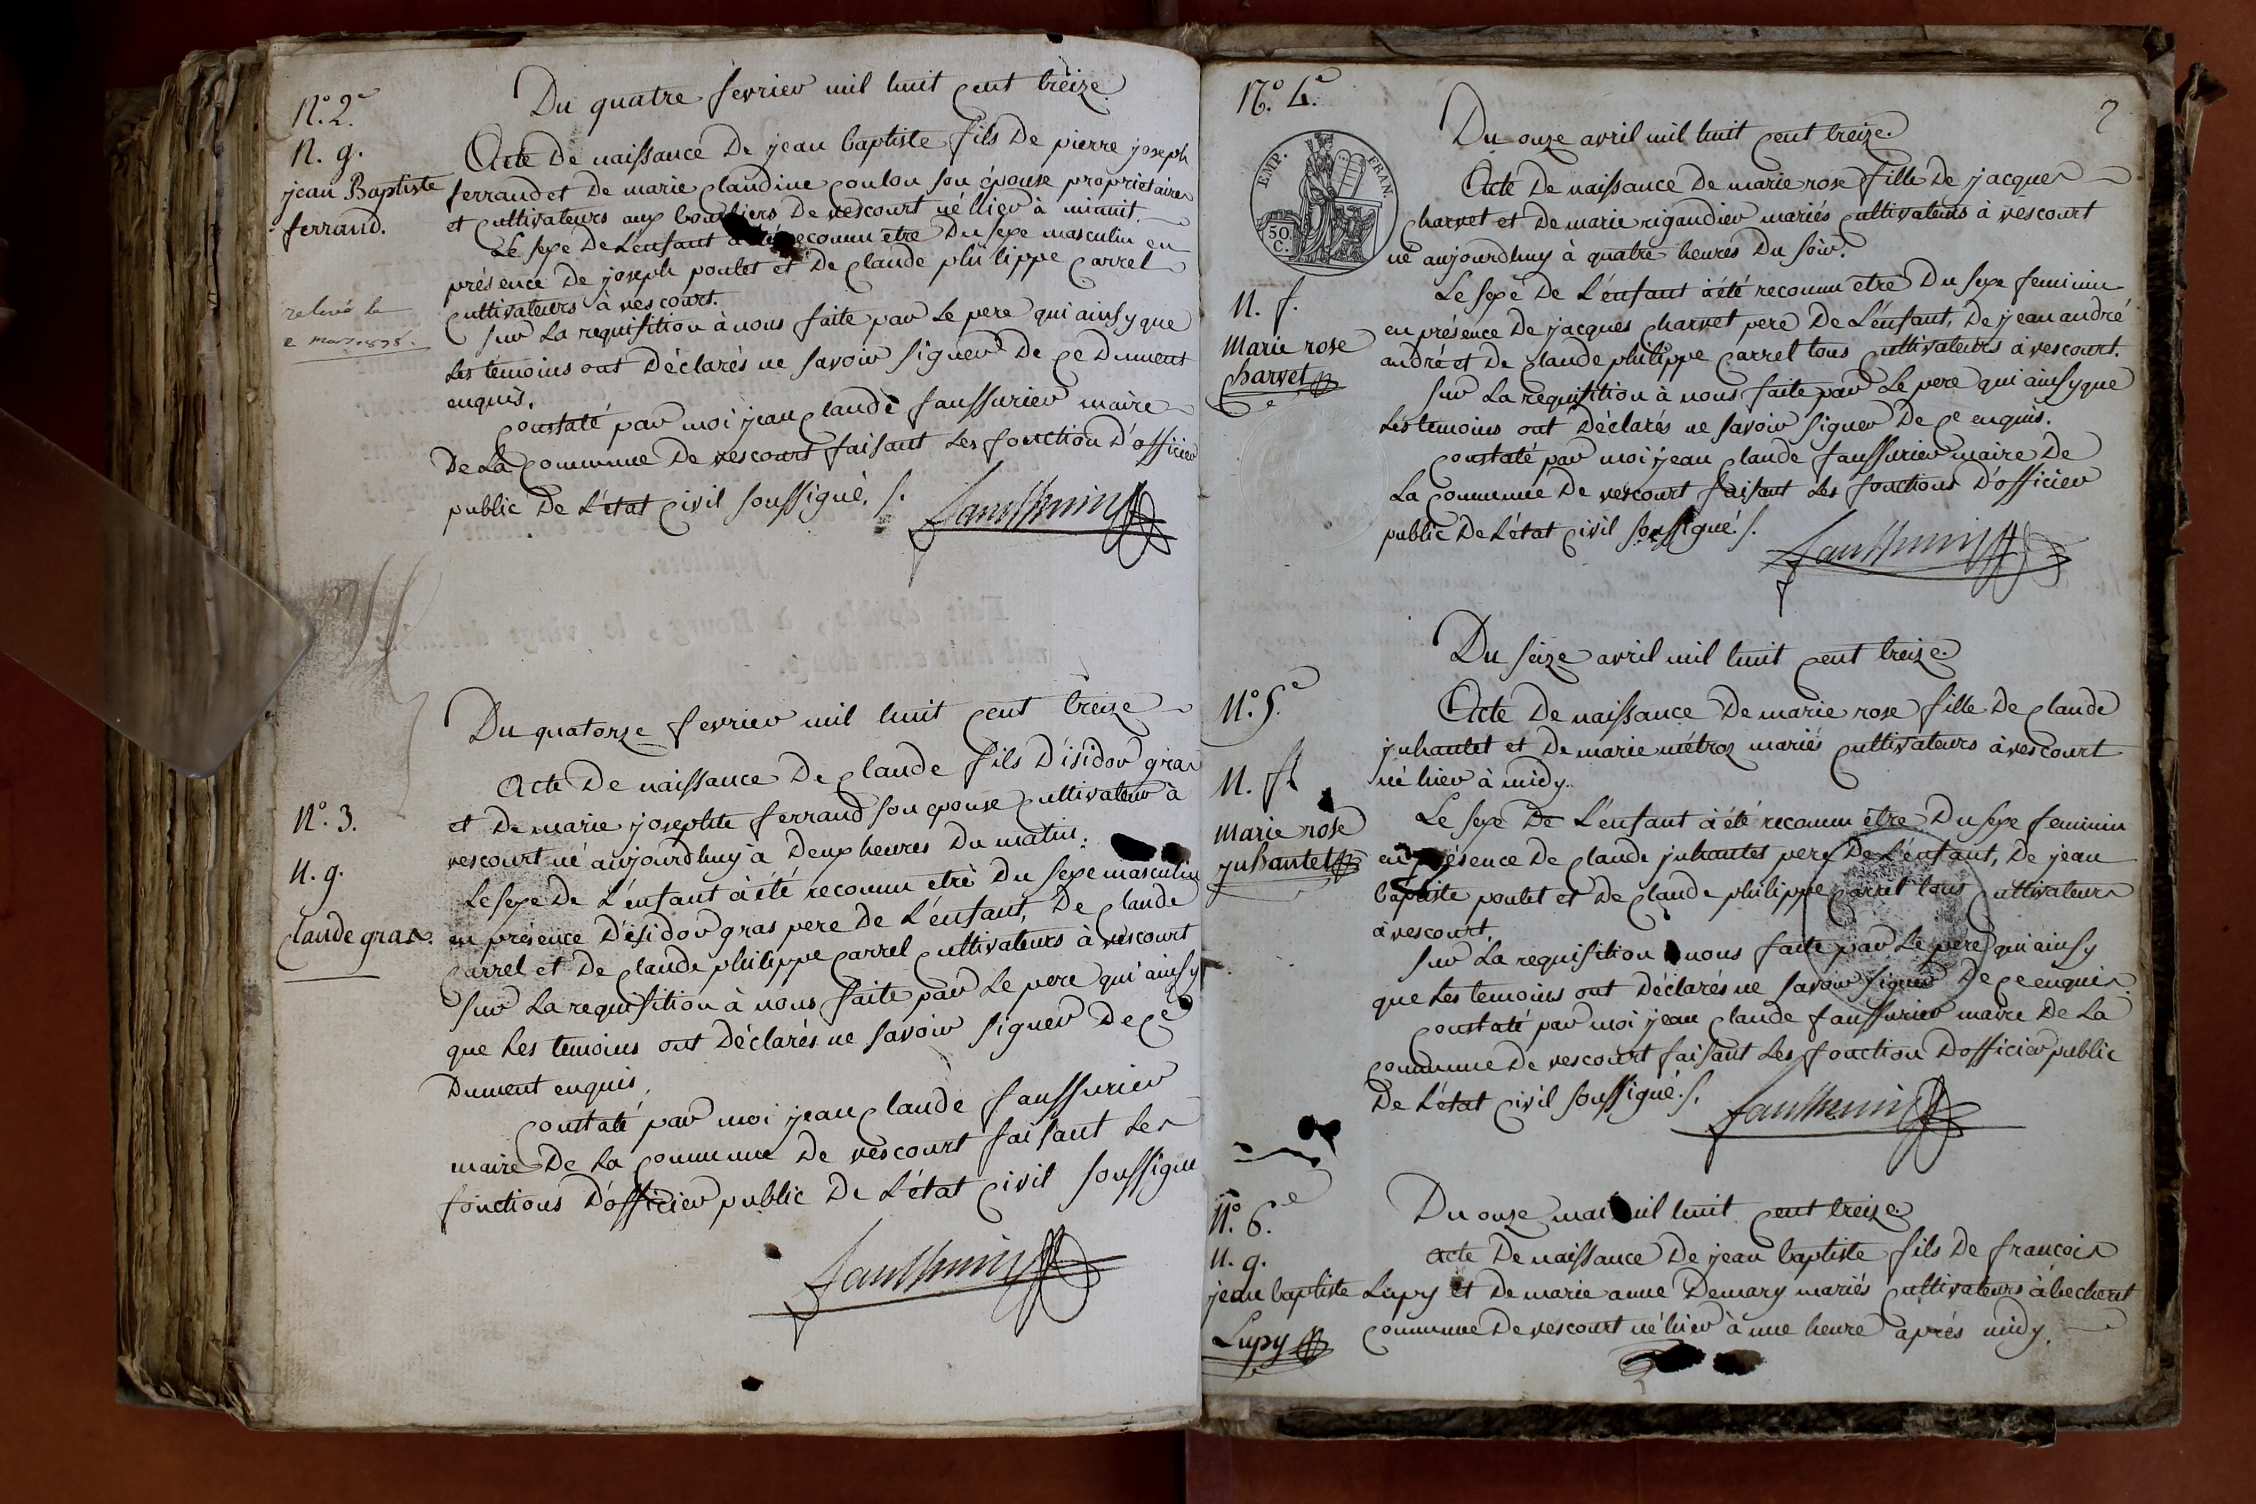 N.° 2.e
N. g.
jean Baptiste
ferrand.
relevé le
2 mars 1898.
Du quatre fevrier mil huit cent treize
Acte De naissance De jean baptiste fils De pierre joseph
ferrand et De marie claudine coulon son épouse proprietaires
et cultivateurs aux De vescourt né hier à minuit.
Le sexe De L'enfant a été reconnu etre Du sexe masculin en
présence De joseph poulet et De claude philippe carrel
cultivateurs à vescourt.
sur La requisition à nous faite par Le pere qui ainsy que
Les temoins ont Déclarés ne savoir signer De ce Dument
enquis.
constaté par moi jean claude faussurier maire
De La commune De vescourt faisant Les fonction D'officier
public De L'état civil soussigné. /.
N.° 3.
N. g.
Claude gras.
Du quatorze fevrier mil huit cent treize
Acte De naissance De claude fils D'isidor gras
et De marie josephte ferrand son epouse cultivateur à
vescourt né aujourdhuy à Deux heures Du matin.
Le sexe De L'enfant à été reconnu etre Du sexe masculin
en présence D'esidor gras pere De L'enfant, De claude
carrel et De claude philippe carrel cultivateurs à vescourt
sur La requisition à nous faite par Le pere qui ainsy
que Les temoins ont Déclarés ne savoir signer De ce
Dument enquis.
constaté par moi jean claude faussurier
maire De La commune De vescourt faisant Les
fonctions D'officier public De L'état civil soussigné
2
N.° 4.e
EMP. FRAN.
50 C.
N. f.
Marie rose
charvet
Du onze avril mil huit cent treize.
Acte De naissance De marie rose fille De jacques
charvet et De marie rigaudier mariés cultivateurs à vescourt
né aujourdhuy à quatre heures Du soir.
Le sexe De L'enfant à été reconnu etre Du sexe feminin
en présence De jacques charvet pere De L'enfant, De jean andré
andré et De claude philippe carrel tous cultivateurs à vescourt.
sur La requisition à nous faite par Le pere qui ainsy que
Les temoins ont Déclarés ne savoir signer De ce enquis.
constaté par moi jean claude faussurier maire De
La commune De vescourt faisant Les fonctions D'officier
public De L'état civil soussigné. /.
N.° 5.e
N. f.
Marie rose
juhantet
Du seize avril mil huit cent treize.
Acte De naissance De marie rose fille De claude
juhantet et De marie métroz mariés cultivateurs à vescourt
né hier à midy.
Le sexe De L'enfant à été reconnu être Du sexe feminin
en présence De claude juhantet pere De L'enfant, De jean
baptiste poulet et De claude philippe carrel tous cultivateurs
à vescourt.
sur La requisition à nous faite par Le pere qui ainsy
que Les temoins ont Déclarés ne savoir signer De ce enquis.
constaté par moi jean claude faussurier maire De La
commune De vescourt faisant Les fonction D'officier public
De L'état civil soussigné. /.
N.° 6.e
N. g.
jean baptiste
Lupy
Du onze mai mil huit cent treize
Acte De naissance De jean baptiste fils De francois
Lupy et De marie anne Demary mariés cultivateurs à
commune De vescourt né hier à une heure après midy.